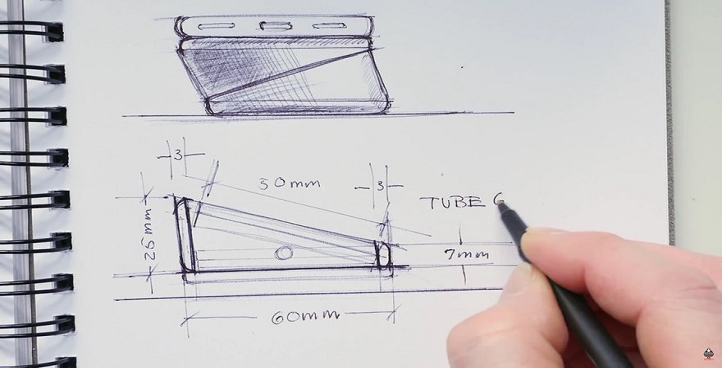 3
50mm
3
TUBE
25mm
7mm
60mm